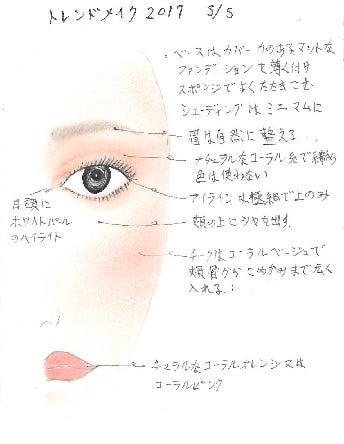 トレンドメイク 2017 S/S
ベースはカバー力のあるマットな
ファンデーションを薄く付け
スポンジでよくたたきこむ
シェーディングはミニマムに
眉は自然に整える
ナチュラルなコーラル系で締め
色は使わない
アイラインは極細で上のみ
目頭に
ホワイトパール
のハイライト
頬の上にツヤを出す
チークはコーラルベージュで
頬骨からこめかみまで広く
入れる
ナチュラルなコーラルオレンジ又は
コーラルピンク